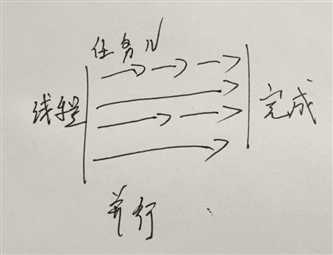 任务N
线程
完成
并行